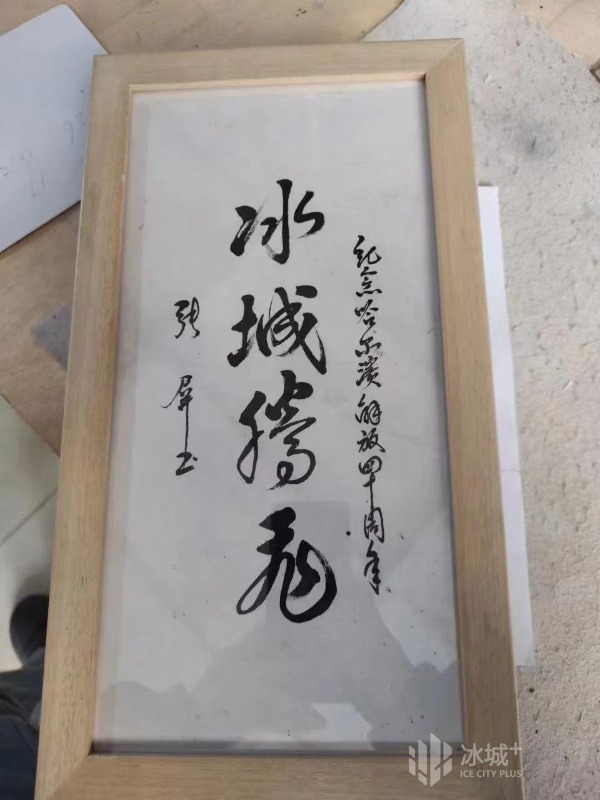 纪念哈尔滨解放四十周年
冰城腾飞
张屏书
冰城+
ICE CITY PLUS